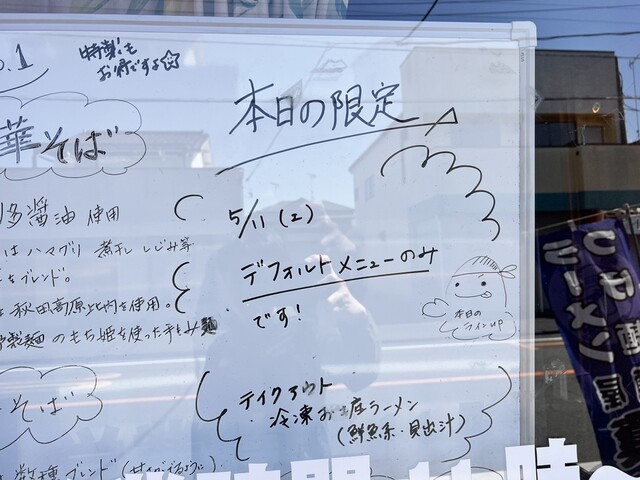 o.1
特製も
お得ですよ☆
華そば
本日の限定
5/11(土)
デフォルトメニューのみ
です!
本日の
ラインUP
醤油 使用
はハマグリ 煮干し しじみ等
をブレンド。
秋田高原比内を使用。
製麺のもち姫を使った手もみ麺
そば
テイクアウト
冷凍お土産ラーメン
(鮮魚系・貝出汁)
ブレンド
ラーメン
11時